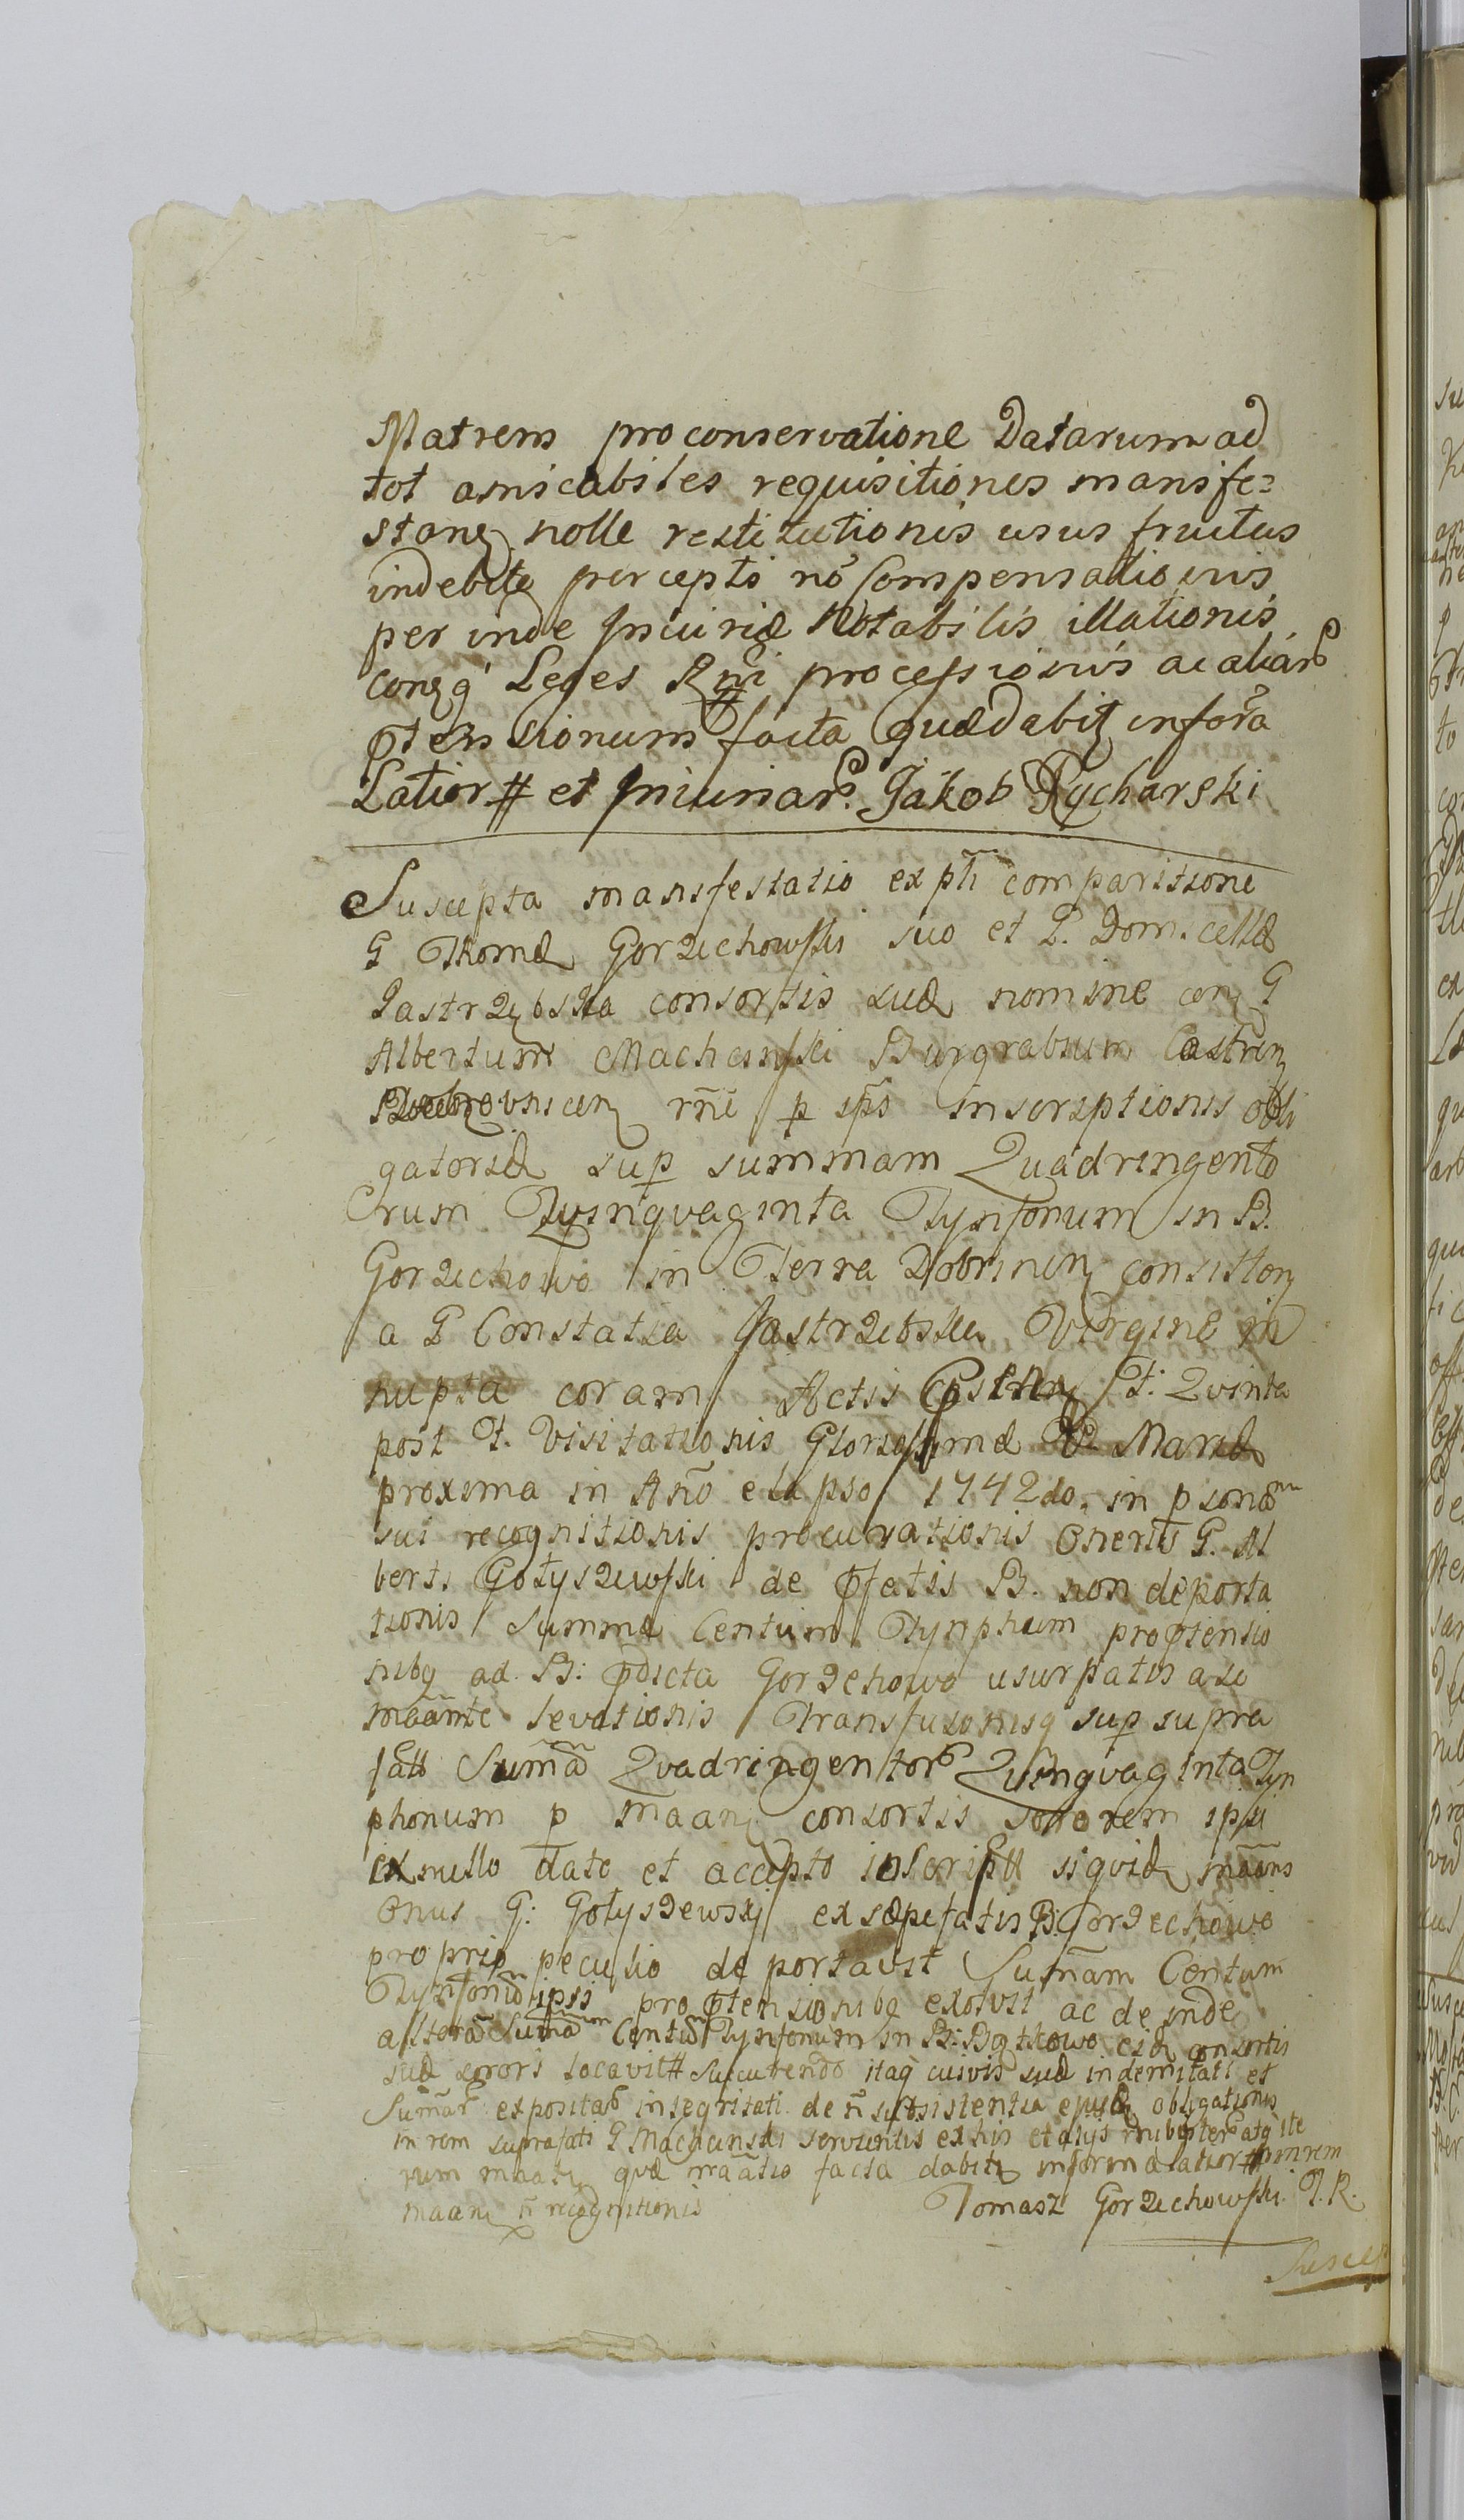 Matrem pro conservatione Datarum ad
tot amicabiles requisitiones manife=
stanq nolle restitutionis usus fructus
indebite percepti nō Compensationis
per inde Iniuriæ Notabilis illationis
conq q' Leges Rgni processionis ac aliar
ptensionum facta quæ dabit infor̃a
Latior# et Iniuriar. Jakob Rycharski
Suscepta manifestatio ex pti comparitione
G Thomæ Gorzechowski suo et G. Domicellæ
Jastrzębska consortis suæ nomine conq G
Albertum Machcinski Burgrabium Castren
Bobrovnicen rñe p ips inscriptionis obli
gatoriæ sup summam Quadringento
rum Quinquaginta Tynfonum in B.
Gorzechowo in Terra Dobrinen consisten
a G Constatia Jastrzebska Virgine in
nupta coram Actis F: Quinta
post F. Visitationis Gloriosissimæ V. Mariæ
proxima in Año elapso 1742do. in psonam
sui recognitionis procurationis Oneris G. Al
berti Gołyszewski de pfatis B. non deporta
tionis Summæ Centum Tynphum pro ptensio
nibq ad B: pdicta Gorzechowo usurpatis a se
mãante levationis Transfusionisq sup supra
fatt Sum̃a Quadringentor Quinquaginta Tyn
phonum p mãan consortis sororem ipsi
ex nullo dato et accepto inscriptt siquidq mãans
Onus G: Gołyszewsky ex sæpefatis B: Gorzechowo
proprio peculio deportavit Sum̃am Centum
Tynfonū ipsi pro ptensionibq exolvit ac de inde
alteram Sumam Centū Tynfonum in B: eidq consortis
suæ sorori locavit# Succurendo itaq cuivis suæ indemitati et
Sum̃ar expositar integritati de ñ subsistentia ejusdq obligationis
in rem suprafati G Machcinski servientis ex his et alys
rum maatq quæ mãatio facta dabitq informa latior# in rem
maanq ñ recognitionis Tomasz Gorzechowski. P.R.
Suscep